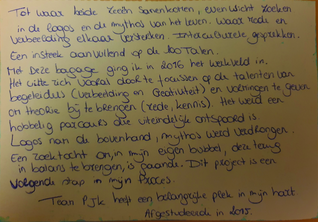 Tot waar beide reeds samenkomen, evenwicht zoeken
in de logos en de mythos van het leven. Waar rede en
verbeelding elkaar versterken. Interculturele gesprekken.
Een insteek aanvullend op de 100 Talen.
Met deze bagage ging ik in 2016 het werkveld in.
Het uitte zich vooral door te focussen op de talenten van
begeleiders (verbeelding en creativiteit) en vormingen te geven
om theorie bij te brengen (rede, kennis). Het werd een
hobbelig parcours die uiteindelijk ontspoord is
Logos nam de bovenhand, mythos werd verdrongen.
Een zoektocht om, in mijn eigen bubbel, deze terug
in balans te brengen, is gaande. Dit project is een
volgende stap in mijn proces.
Team PJK heeft een belangrijke plek in mijn hart
Afgestudeerd in 2015.